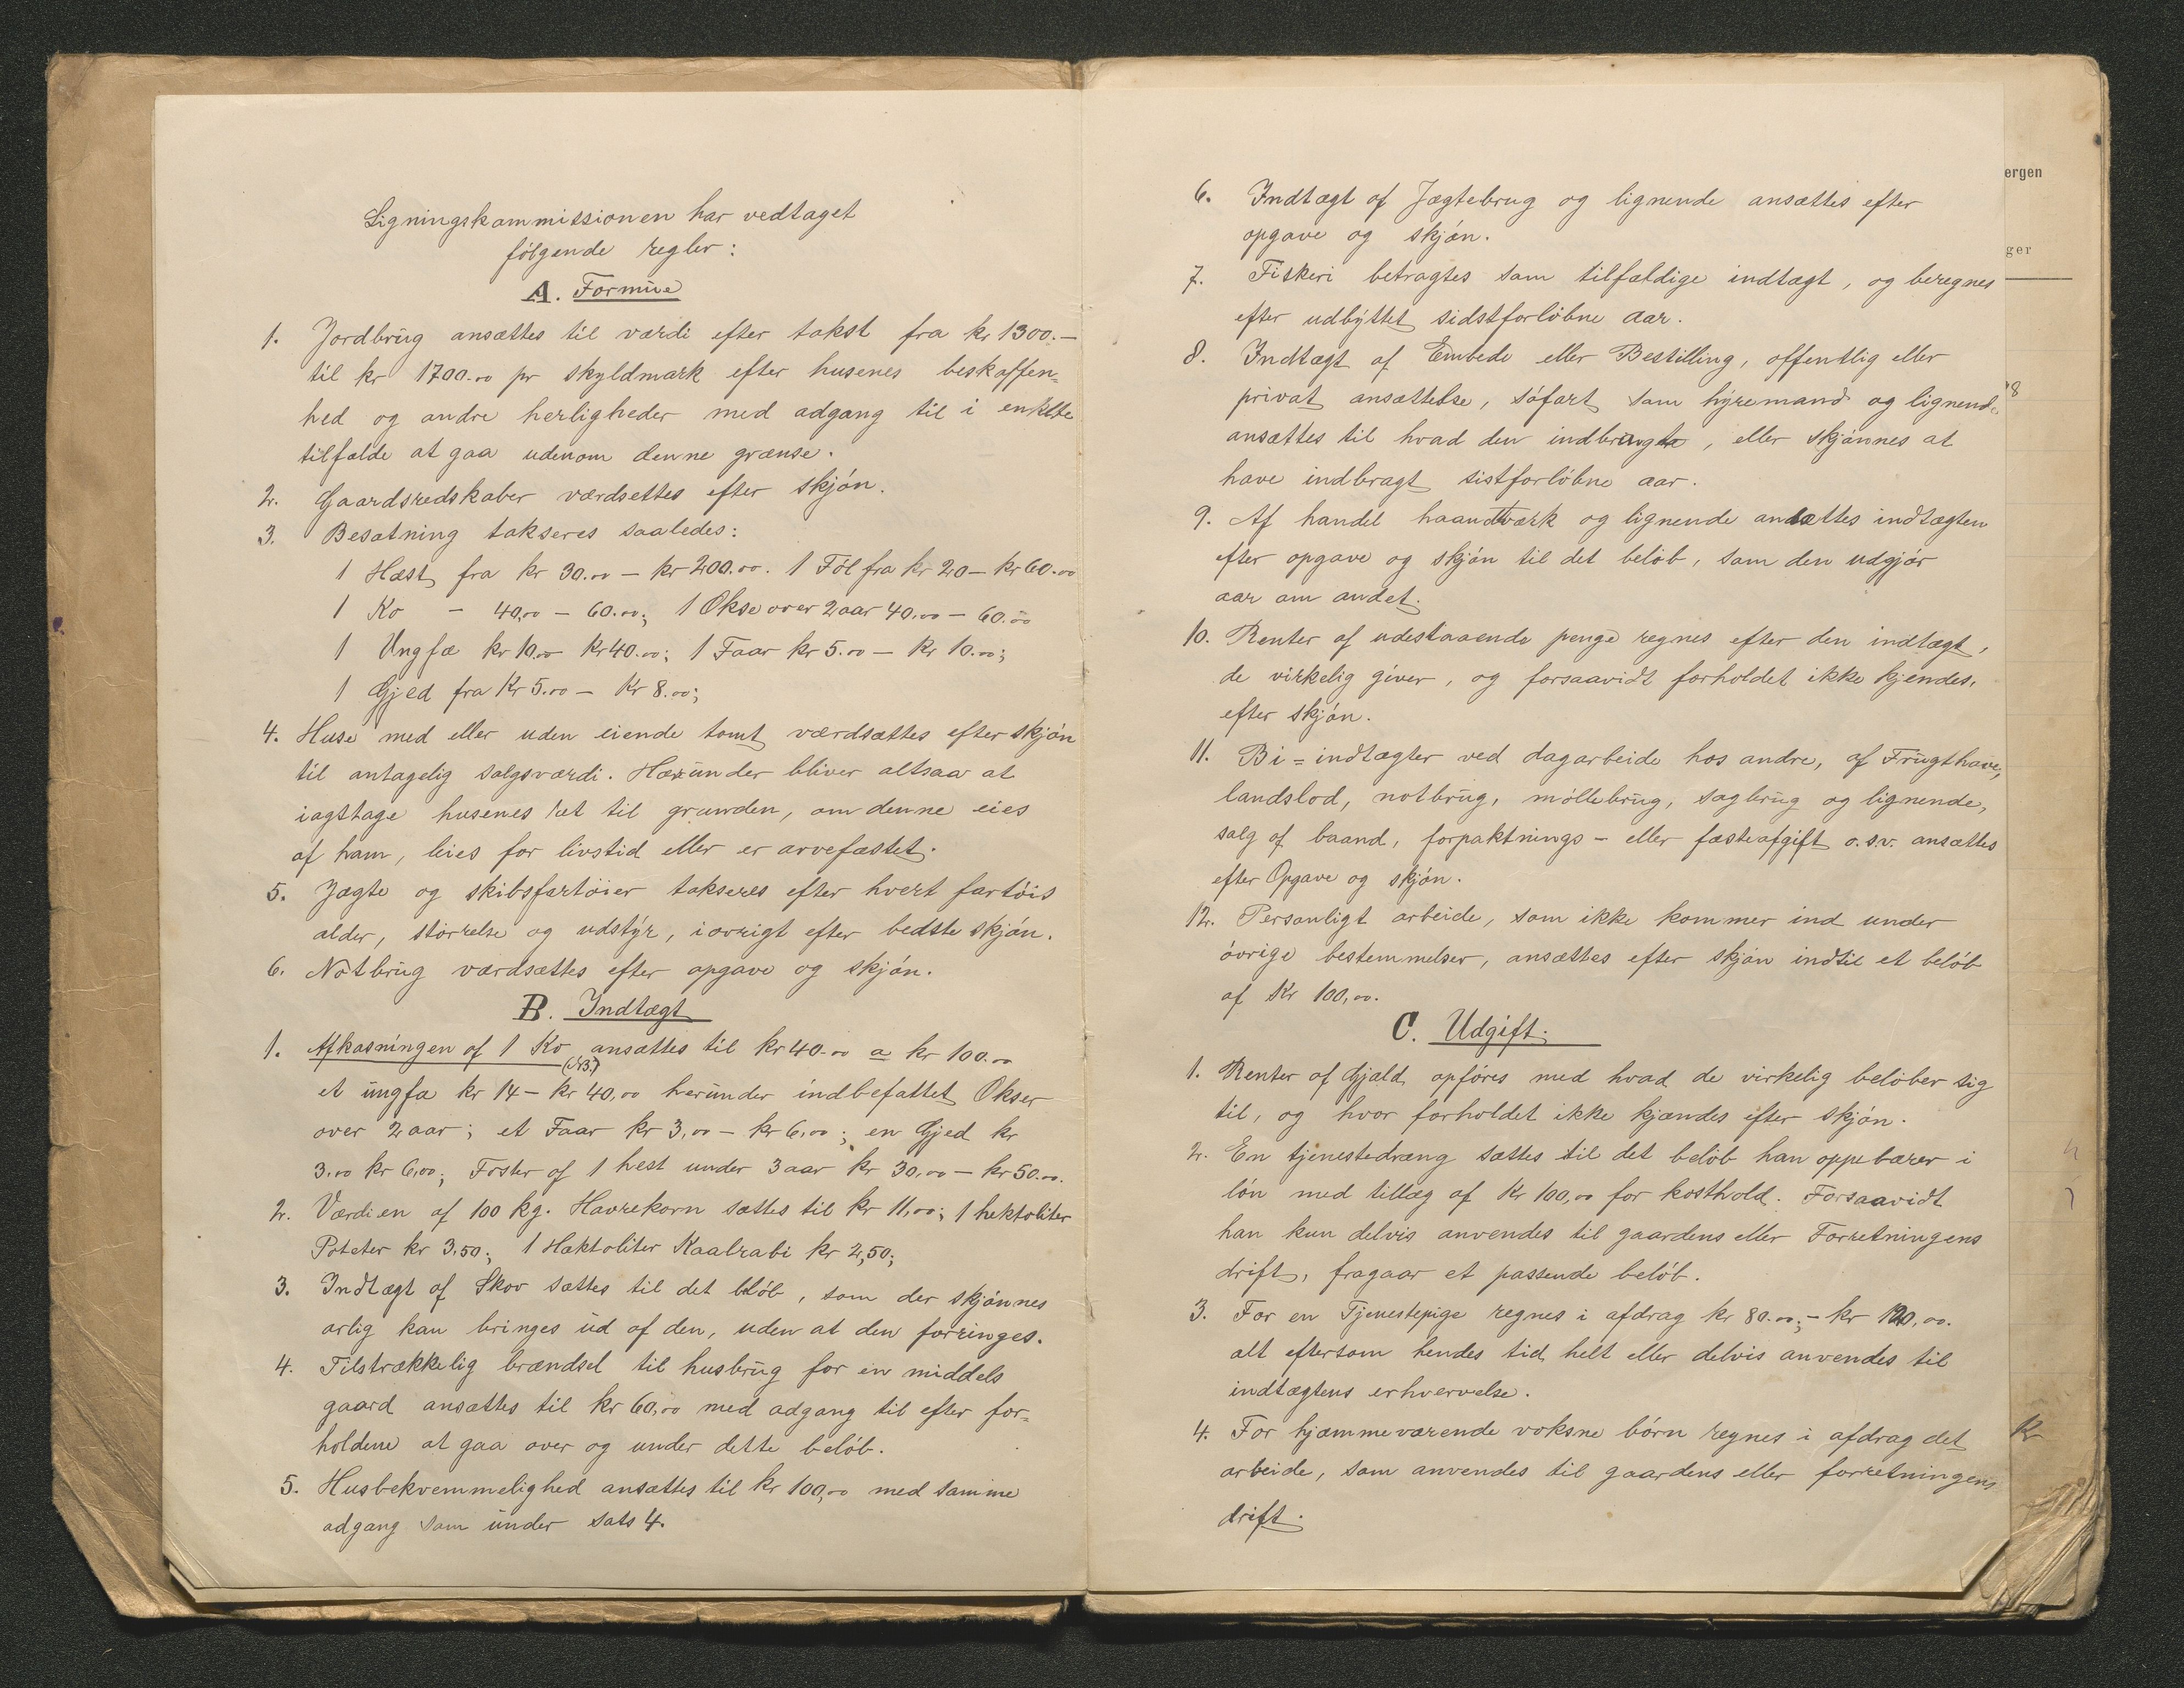 Ligningskommissionen har vedtaget
følgende regler:
A. Formue
1. Jordbrug ansættes til værdi efter takst fra kr 1300.–
til kr 1700.00 pr skyldmark efter husenes beskaffen=
hed og andre herligheder med adgang til i enkelte
tilfælde at gaa udenom denne grænse.
2. Gaardsredskaber værdsettes efter skjøn.
3. Besætning takseres saaledes:
1 Hæst fra kr 30.00 – kr 200.00. 1 Føl fra kr 20 – kr 60.00
1 Ko – 40,00 – 60.00; 1 Okse over 2 aar 40.00 – 60.00
1 Ungfæ kr 10.00 – kr 40.00; 1 Faar kr 5.00 – kr 10.00;
1 Gjed fra kr 5.00 – kr 8.00;
4. Huse med eller uden eiende tomt værdsættes efter skjøn
til antagelig salgsværdi. Herunder bliver altsaa at
iagttage husenes ret til grunden, om denne eies
af ham, leies for livstid eller er arvefæstet.
5. Jægte og skibsfartøier takseres efter hvert fartøis
alder, størrelse og udstyr, iøvrigt efter bedste skjøn.
6. Notbrug værdsættes efter opgave og skjøn.
B. Indtægt
1. Afkasningen af 1 Ko ansættes til kr 40.00 a kr 100.00
(NB.)
et ungfæ kr 14 – kr 40,00 herunder indbefattet Okser
over 2 aar; et Faar kr 3,00 – kr 6,00; en Gjed kr
3.00 kr 6,00; Foster af 1 hest under 3 aar kr 30,00 – kr 50.00.
2. Værdien af 100 kg. Havrekorn sættes til kr 11,00; 1 hektoliter
Poteter kr 3.50; 1 Hektoliter Kaalrabi kr 2,50;
3. Indtægt af Skov sættes til det bløb, som der skjønnes
arlig kan bringes ud af den, uden at den forringes.
4. Tilstrækkelig brændsel til husbrug for en middels
gaard ansættes til kr 60,00 med adgang til efter for=
holdene at gaa over og under dette beløb.
5. Husbekvemmelighed ansættes til kr 100,00 med samme
adgang som under sats 4.
6. Indtægt af Jægtebrug og lignende ansættes efter
opgave og skjøn.
7. Fiskeri betragtes som tilfældige indtægt, og beregnes
efter udbyttet sidstforløbne aar.
8. Indtægt af Embede eller Bestilling, offentlig eller
privat ansættelse, søfart som hyremand og lignende
ansættes til hvad den indbragte, eller skjønnes at
have indbragt sistforløbne aar.
9. Af handel haandtværk og lignende ansættes indtægten
efter opgave og skjøn til det beløb, som den udgjør
aar om andet.
10. Renter af udestaaende penge regnes efter den indtægt,
de virkelig giver, og forsaavidt forholdet ikke kjendes,
efter skjøn.
11. Bi=indtægter ved dagarbeide hos andre, af Frugthave,
landslod, notbrug, møllebrug, sagbrug og lignende,
salg af baand, forpaktnings- eller fæsteafgift o.s.v. ansættes
efter Opgave og skjøn.
12. Personligt arbeide, som ikke kommer ind under
øvrige bestemmelser, ansættes efter skjøn indtil et beløb
af Kr 100,00.
C. Udgift.
1. Renter af Gjæld opføres med hvad de virkelig beløber sig
til, og hvor forholdet ikke kjændes efter skjøn.
2. En tjenestedræng sættes til det beløb han oppebærer i
løn med tillæg af Kr 100,00 for kosthold. Forsaavidt
han kun delvis anvendes til gaardens eller Forretningens
drift, fragaar et passende beløb.
3. For en Tjenestepige regnes i afdrag kr 80.00; – kr 120,00.
alt eftersom hendes tid helt eller delvis anvendes til
indtægtens erhvervelse.
4. For hjæmmeværende voksne børn regnes i afdrag det
arbeide, som anvendes til gaardens eller forretningens
drift.
ergen
ger